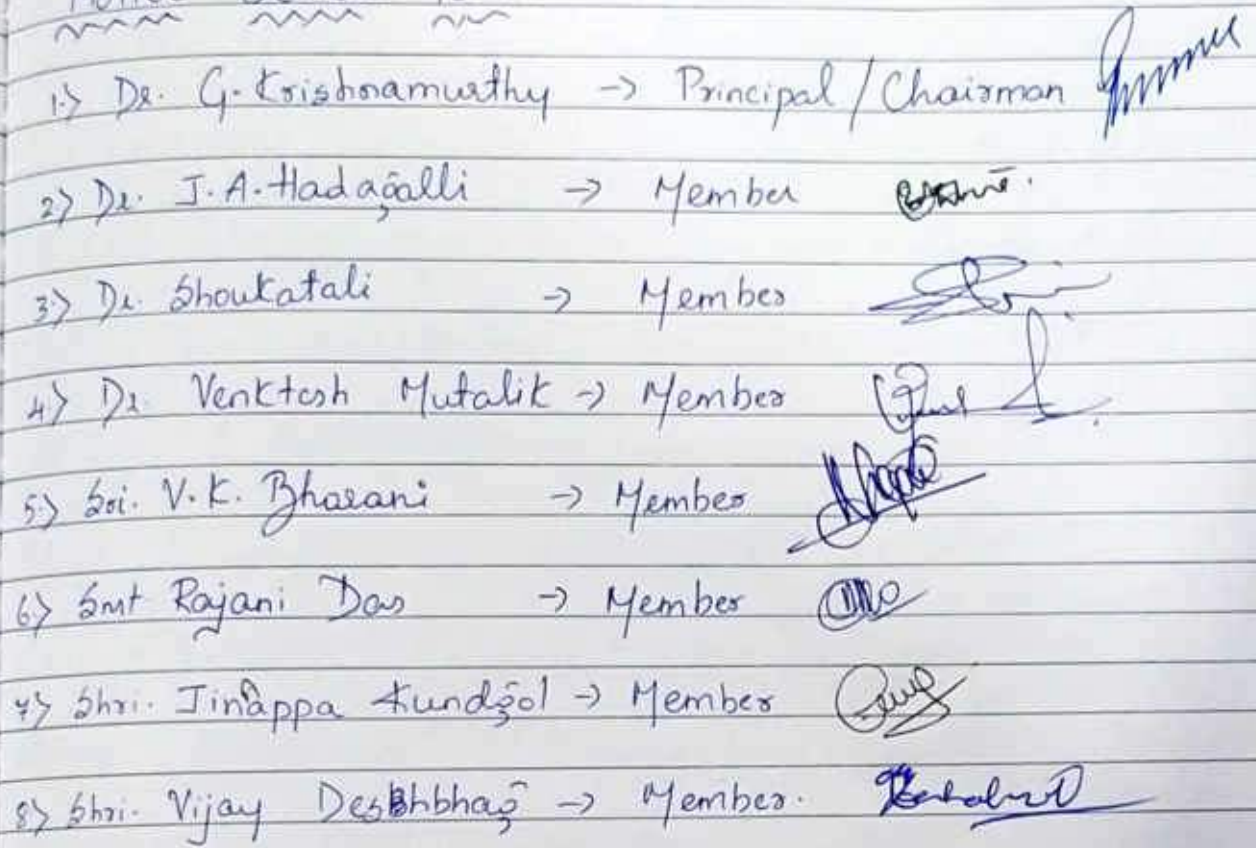 1.> Dr. G. Krishnamurthy -> Principal / Chairman
2> Dr. J.A. Hadagalli -> Member
3.> Dr. Shoukatali -> Member
4> Dr. Venktesh Mutalik -> Member
5.> Sri. V.K. Bharani -> Member
6> Smt Rajani Das -> Member
7> Shri. Jinappa Kundgol -> Member
8> Shri. Vijay Deshbhag -> Member.